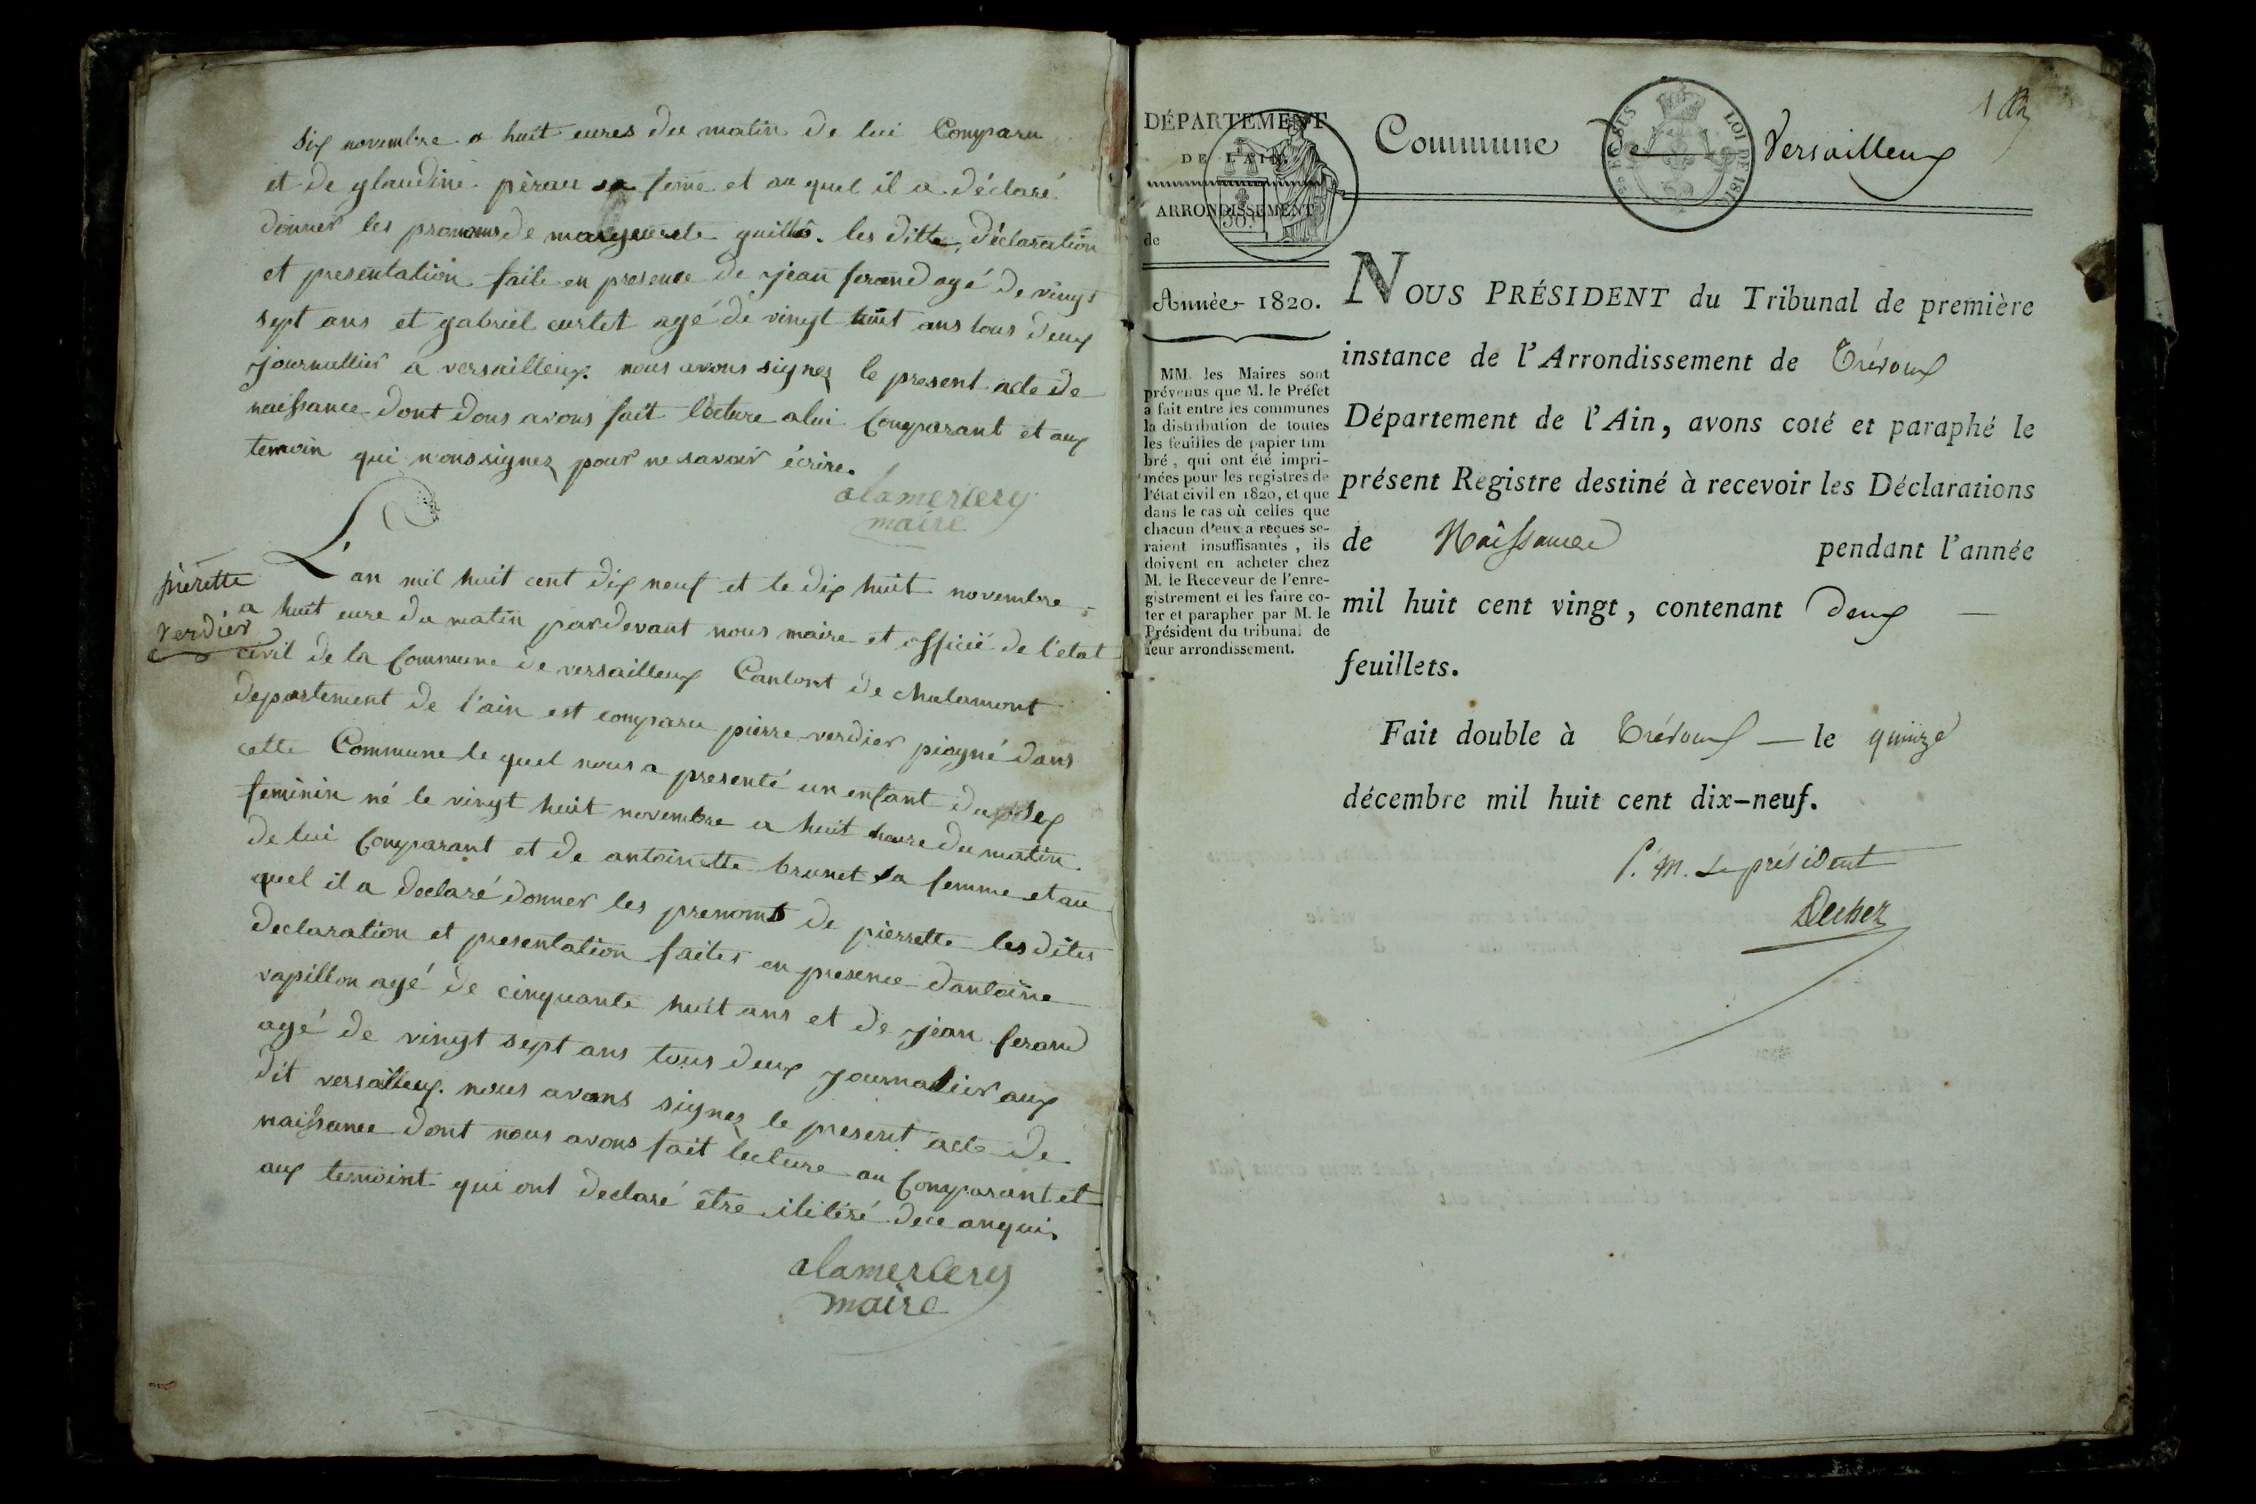 six novembre a huit eures du matin de lui Comparu
et de glaudine pèrau sa feme et au quel il a déclaré
donner les pronoms de marguerete guillô. les ditte, déclaration
et presentation faite en presence de jean ferand agé de vingt
sept ans et gabriel curtet agé de vingt huit ans tous deux
journallier a versailleux. nous avons signez le present acte de
naissance dont dous avons fait lecture a lui Comparant et aux
temoin qui n'ons signez pour ne savoir écrire.
alamercery
maire
pierette
verdier
L'an mil huit cent dix neuf et le dix huit novembre
a huit eure du matin pardevant nous maire et officié de l'etat
civil de la Commune de versailleux Cantont de chalamont
departement de l'ain est comparu pierre verdier piogné dans
cette Commune le quel nous a presenté un enfant du sex
feminin né le vingt huit novembre a huit heure du matin
de lui Comparant et de antoinette brunet sa femme et au
quel il a declaré donner les prenoms de pierrette les dites
declaration et presentation faites en presence d'antoine
vapillon agé de cinquante huit ans et de jean ferand
agé de vingt sept ans tous deux journalier aux
dit versailleux. nous avons signez le present acte de
naissance dont nous avons fait lecture au Comparant et
aux temoint qui ont declaré être ilitéré de ce anquis
alamercery
maire
DÉPARTEMENT
DE L'AIN.
ARRONDISSEMENT
de
Année 1820.
MM. les Maires sont
prévenus que M. le Préfet
a fait entre les communes
la distribution de toutes
les feuilles de papier tim-
bré, qui ont été impri-
mées pour les registres de
l'état civil en 1820, et que
dans le cas où celles que
chacun d'eux a reçues se-
raient insuffisantes, ils
doivent en acheter chez
M. le Receveur de l'enre-
gistrement et les faire co-
ter et parapher par M. le
Président du tribunal de
leur arrondissement.
Commune de Versailleux
LOI DE 181
NOUS PRÉSIDENT du Tribunal de première
instance de l'Arrondissement de Trévoux
Département de l'Ain, avons coté et paraphé le
présent Registre destiné à recevoir les Déclarations
de Naissance pendant l'année
mil huit cent vingt, contenant deux
feuillets.
Fait double à Trévoux — le quinze
décembre mil huit cent dix-neuf.
P. M. Le président